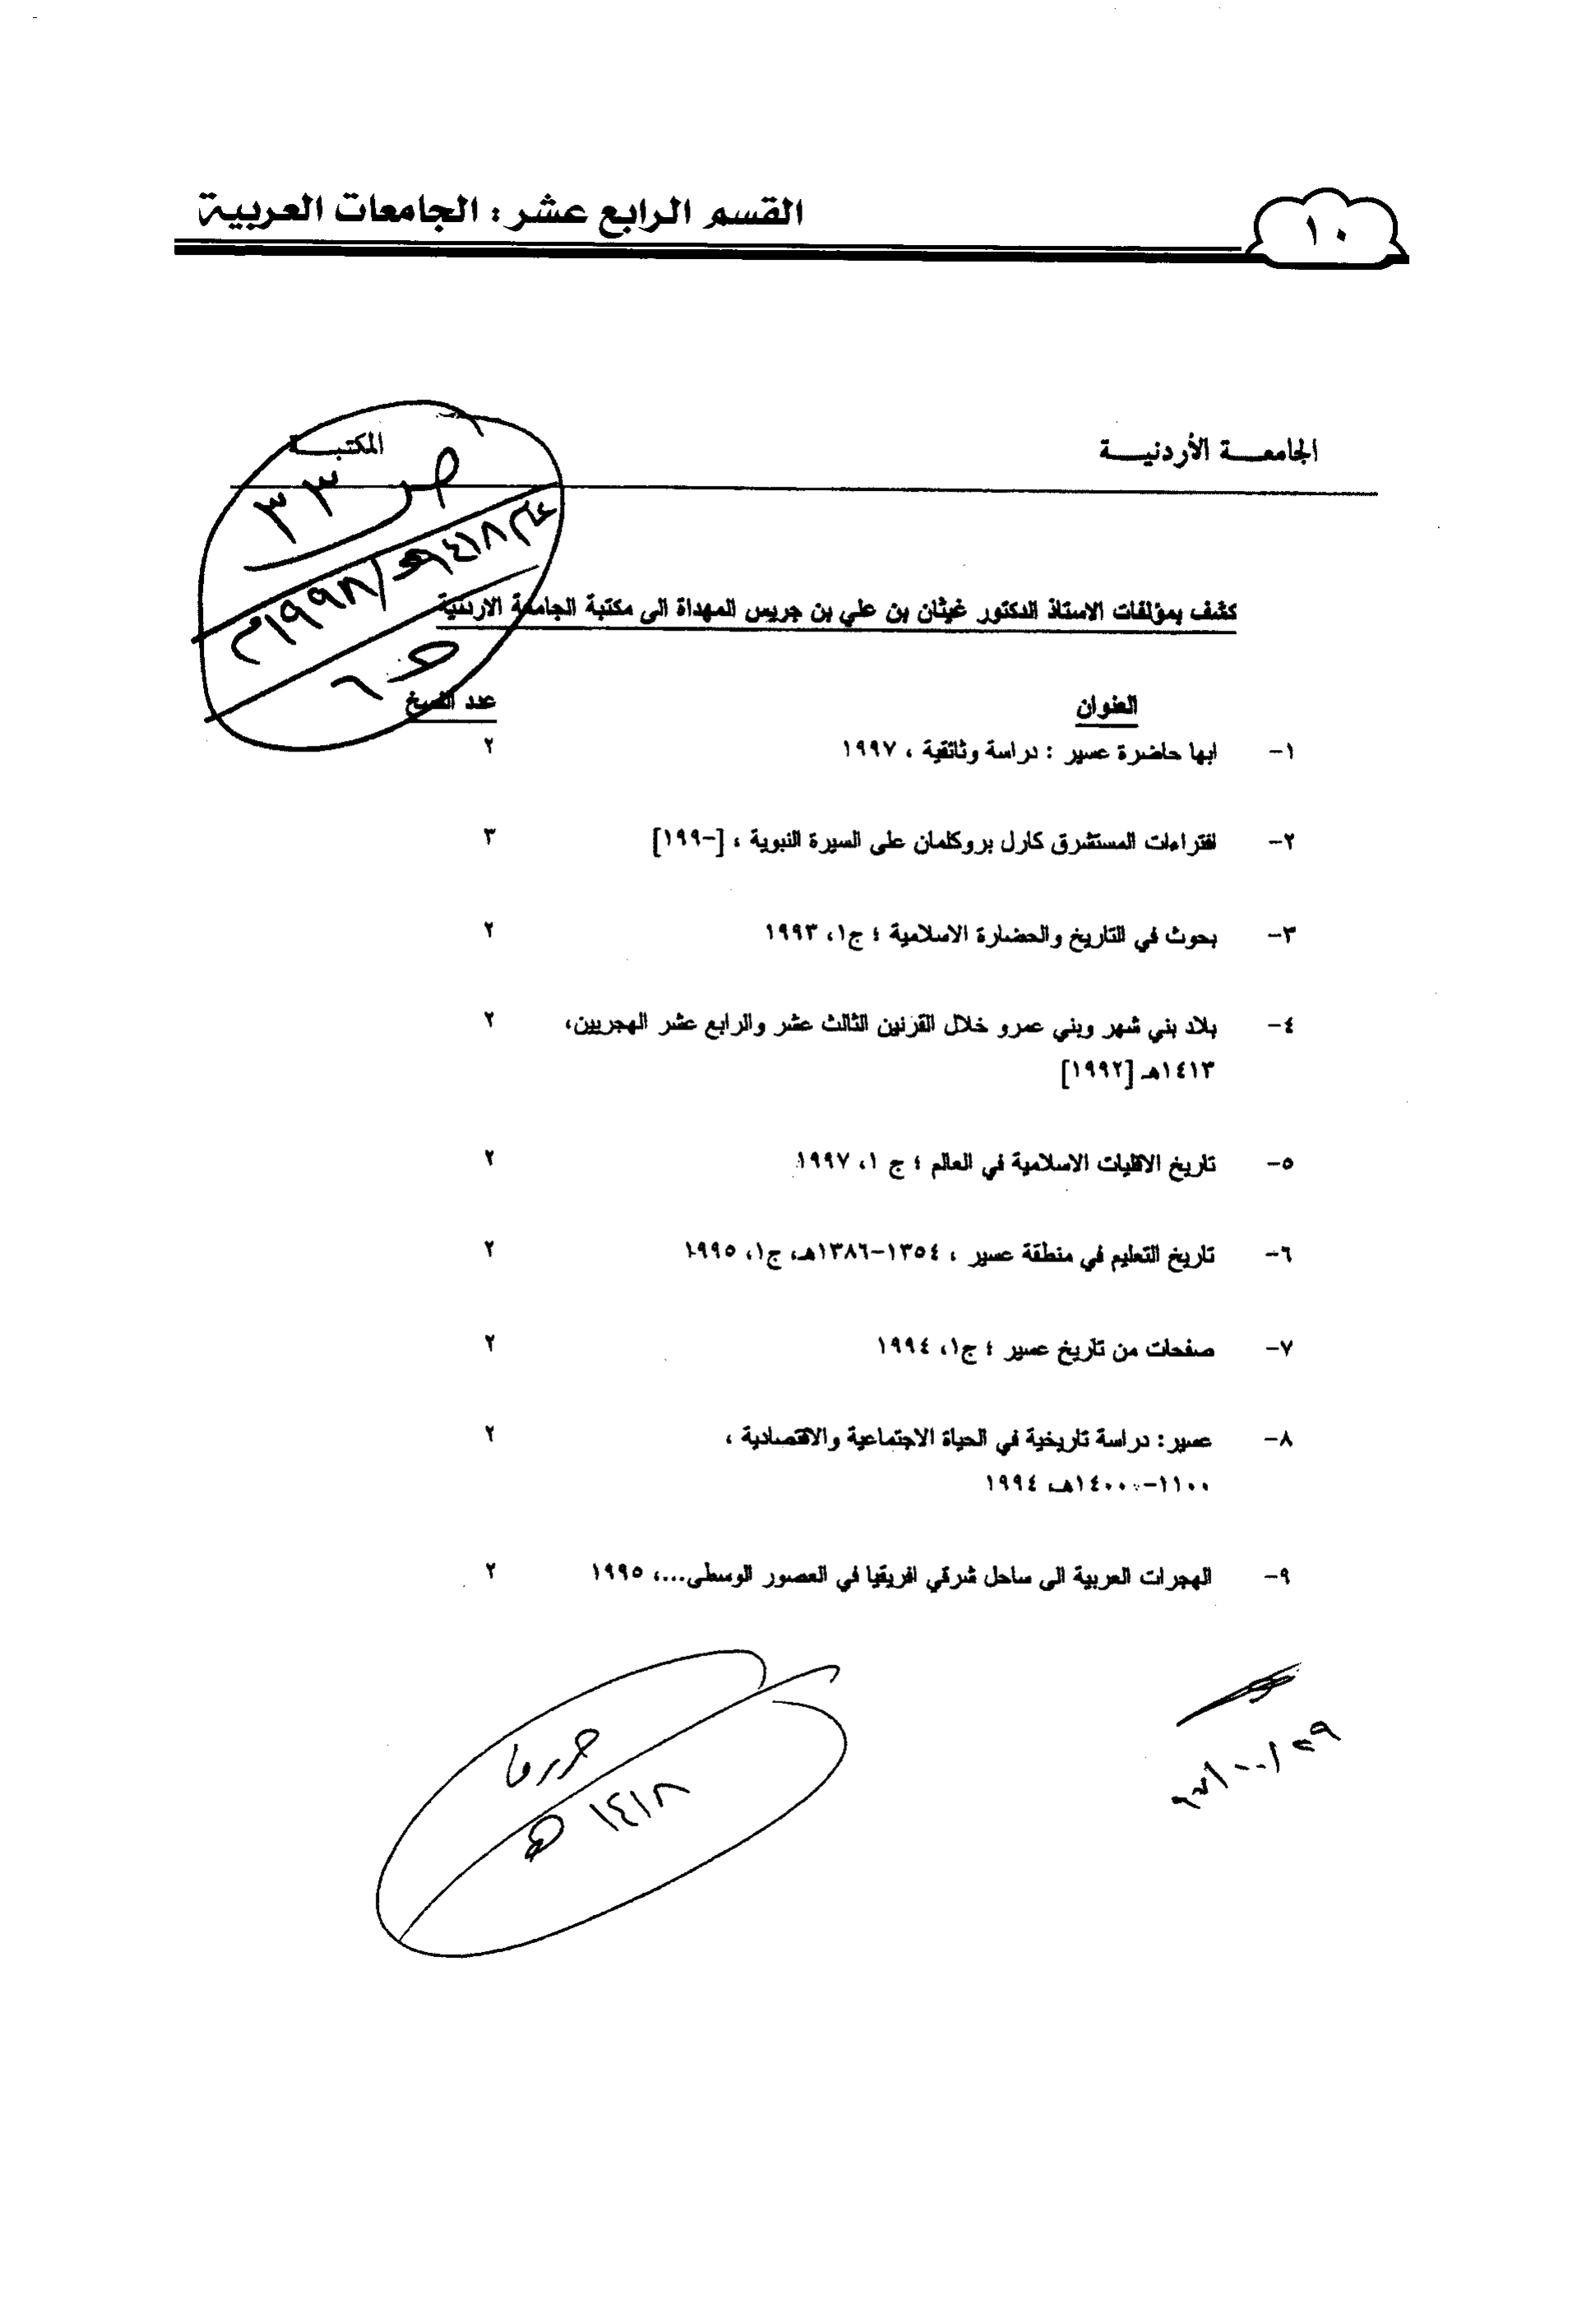 ١٠
القسم الرابع عشر : الجامعات العربية
الجامعـــة الأردنيـــة
المكتبـــة
ص ٣٣
عام ١٤١٨هـ/١٩٩٨م
ص ٦
كشف بمؤلفات الاستاذ الدكتور غيثان بن علي بن جريس المهداة الى مكتبة الجامعة الاردنية
العنوان عدد النسخ
١- ابها حاضرة عسير : دراسة وثائقية ، ١٩٩٧ ٢
٢- افتراءات المستشرق كارل بروكلمان على السيرة النبوية ، [-١٩٩] ٣
٣- بحوث في التاريخ والحضارة الاسلامية ؛ ج١، ١٩٩٣ ٢
٤- بلاد بني شهر وبني عمرو خلال القرنين الثالث عشر والرابع عشر الهجريين، ٢
١٤١٣هـ [١٩٩٢]
٥- تاريخ الاقليات الاسلامية في العالم ؛ ج ١، ١٩٩٧ ٢
٦- تاريخ التعليم في منطقة عسير ، ١٣٥٤-١٣٨٦هـ، ج١، ١٩٩٥ ٢
٧- صفحات من تاريخ عسير ؛ ج١، ١٩٩٤ ٢
٨- عسير : دراسة تاريخية في الحياة الاجتماعية والاقتصادية ، ٢
١١٠٠-١٤٠٠هـ، ١٩٩٤
٩- الهجرات العربية الى ساحل شرقي افريقيا في العصور الوسطى...، ١٩٩٥ ٢
١٤١٨ هـ